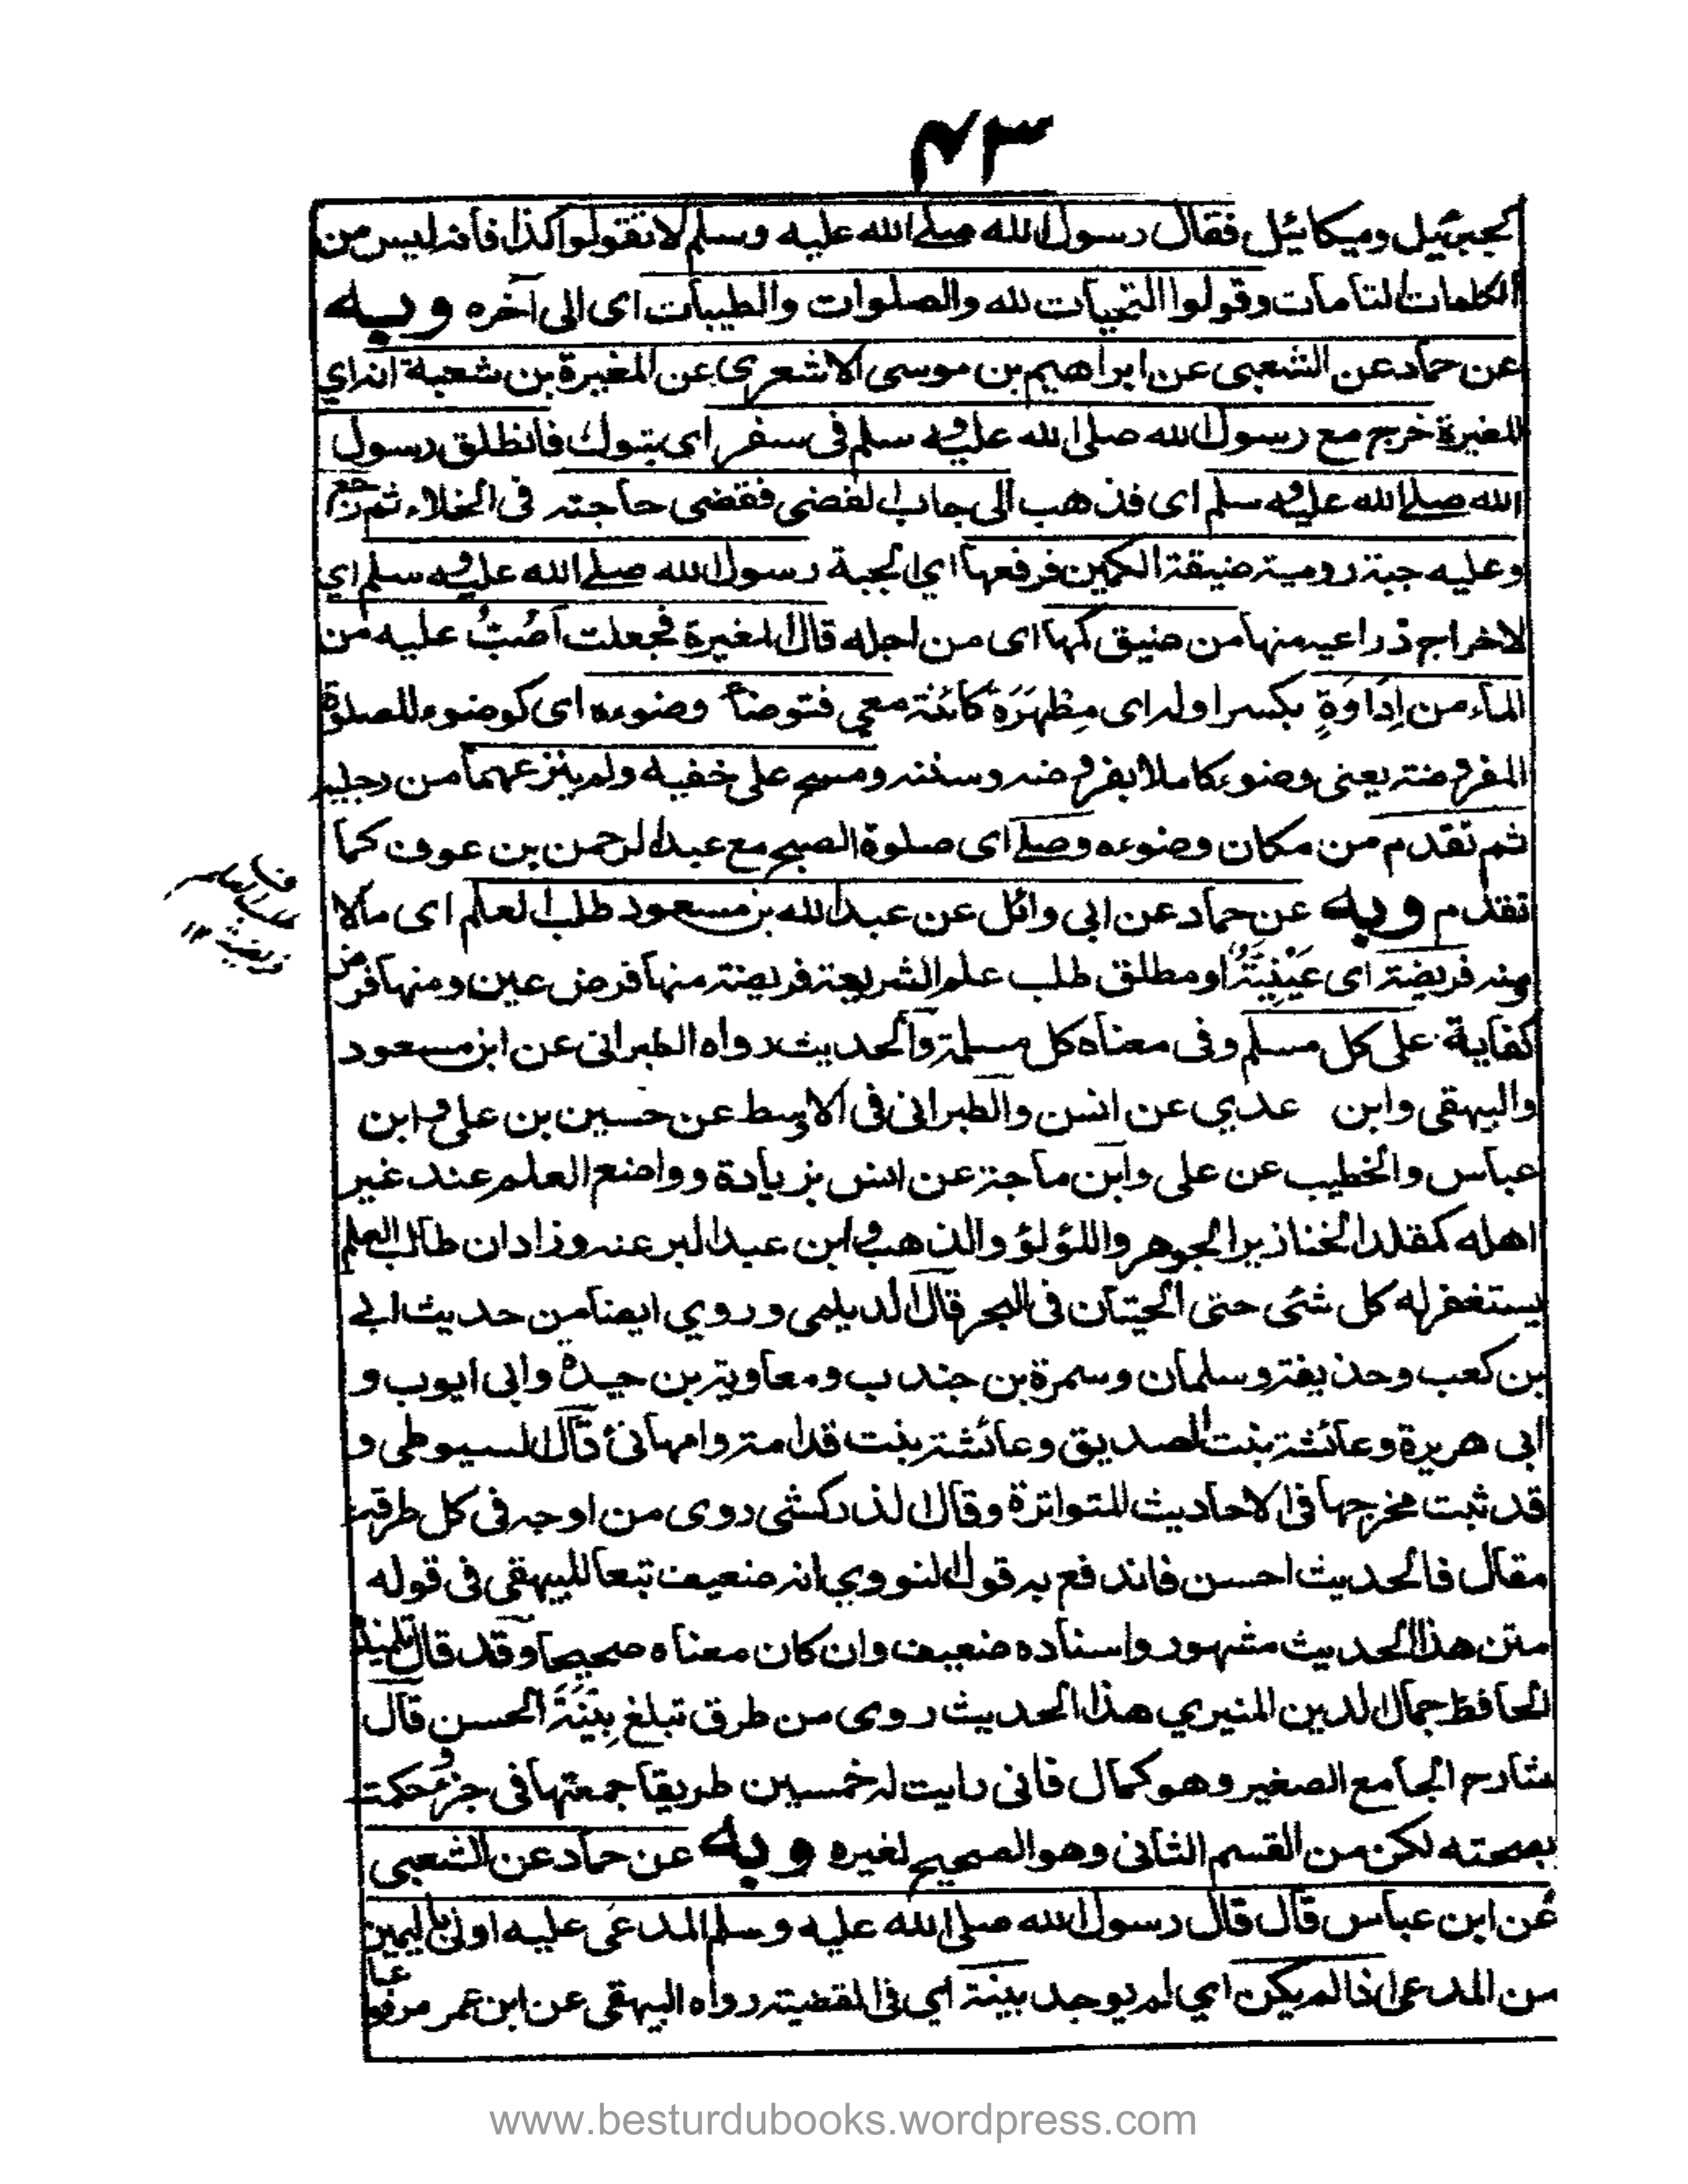 ۴۳
لجبرئيل وميكائيل فقال رسول الله صلے الله عليه وسلم لا تقولوا كذا فانه ليس من
الكلمات التامات وقولوا التحيات لله والصلوات والطيبات اى الى آخره وبه
عن حماد عن الشعبى عن ابراهيم بن موسى الاشعرى عن المغيرة بن شعبة انه اي
المغيرة خرج مع رسول الله صلى الله عليه وسلم فى سفر اى تبوك فانطلق رسول
الله صلے الله عليه وسلم اى فذهب الى جانب لفضى فقضى حاجته فى الخلاء ثم رجع
وعليه جبة رومية ضيقة الكمين فرفعها اي الجبة رسول الله صلے الله عليه وسلم اي
لاخراج ذراعيه منها من ضيق كمها اى من اجله قال المغيرة فجعلت اَصُبُّ عليه من
الماء من اِدَاوَةٍ بكسر اوله اى مِطْهَرَة كائنة معي فتوضأ وضوءه اى كوضوء للصلوة
المفروضة يعنى وضوء كاملا بفروضه وسننه ومسح على خفيه ولم ينزعهما من رجليه
ثم تقدم من مكان وضوءه وصلے اى صلوة الصبح مع عبد الرحمن بن عوف كما
تقدم وبه عن حماد عن ابي وائل عن عبد الله بن مسعود طلب العلم اى ما لا
بد منه فريضة اى عَيْنِيَّةٌ او مطلق طلب علم الشريعة فريضة منها فرض عين ومنها فرض
كفاية على كل مسلم وفى معناه كل مسلمة والحديث رواه الطبرانى عن ابن مسعود
والبيهقى وابن عدي عن انس والطبرانى فى الاوسط عن حسين بن على وابن
عباس والخطيب عن على وابن ماجة عن انس بزيادة وواضع العلم عند غير
اهله كمقلد الخنازير الجوهر واللؤلؤ والذهب وابن عبد البر عنه وزاد ان طالب العلم
يستغفر له كل شئى حتى الحيتان فى البحر قال الديلمى وروي ايضا من حديث ابے
بن كعب وحذيفة وسلمان وسمرة بن جندب ومعاوية بن حيدة وابى ايوب و
ابى هريرة وعائشة بنت الصديق وعائشة بنت قدامة وام هانئ قال السيوطى و
قد ثبت مخرجها فى الاحاديث المتواترة وقال الذركشى روى من اوجه فى كل طرقه
مقال فالحديث احسن فاندفع به قول النووي انه ضعيف تبعا للبيهقى فى قوله
متن هذا الحديث مشهور واسناده ضعيف وان كان معناه صحيحا وقد قال تلميذه
الحافظ جمال الدين المنيري هذا الحديث روى من طرق تبلغ بِتِيَّةَ الحسن قال
شارح الجامع الصغير وهو كمال فانى رايت له خمسين طريقا جمعتها فى جزء وحكمت
بصحته لكن من القسم الثانى وهو الصحيح لغيره وبه عن حماد عن الشعبى
عن ابن عباس قال قال رسول الله صلى الله عليه وسلم المدعى عليه اولى باليمين
من المدعى اذا لم يكن اي لم يوجد بينة اي فى القضية رواه البيهقى عن ابن عمر مرفوعا
www.besturdubooks.wordpress.com